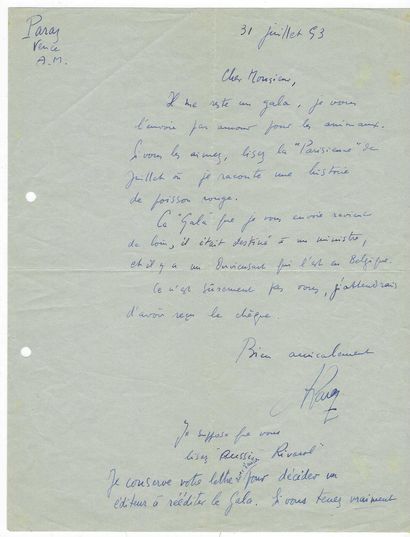 Paraz
Vence
A.M.
31 juillet 53
Cher Monsieur,
Il me reste un gala, je vous
l'envoie par amour pour les animaux.
Si vous les aimez, lisez la "Parisienne" de
Juillet où je raconte une histoire
de poisson rouge.
Ce "Gala" que je vous envoie revient
de loin, il était destiné à un ministre,
et il y a un qui l'est en Belgique.
Ce n'est sûrement pas vous, j'attendrais
d'avoir reçu le chèque.
Bien amicalement
Paraz
Je suppose que vous
lisez aussi "Rivarol"
Je conserve votre lettre pour décider un
éditeur à rééditer le Gala. Si vous tenez vraiment